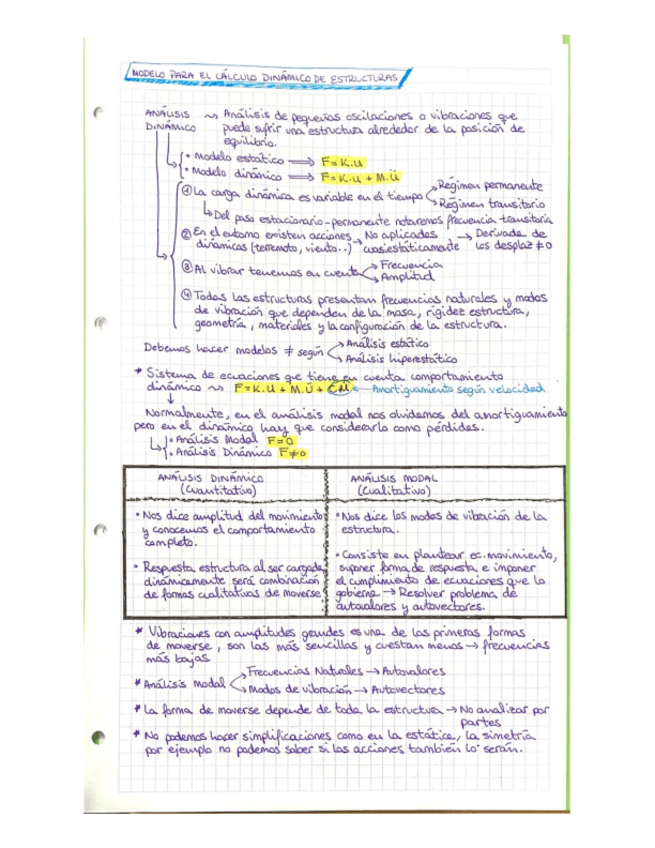 MODELO PARA EL CÁLCULO DINÁMICO DE ESTRUCTURAS
ANÁLISIS DINÁMICO ⇝ Análisis de pequeñas oscilaciones o vibraciones que
puede sufrir una estructura alrededor de la posición de
equilibrio.
• Modelo estático ⟹ F=K.U
• Modelo dinámico ⟹ F=K.U + M.Ü
① La carga dinámica es variable en el tiempo → Régimen permanente
→ Régimen transitorio
↳ Del paso estacionario-permanente notaremos frecuencia transitoria
② En el entorno existen acciones → No aplicadas → Derivada de
dinámicas (terremoto, viento..) cuasiestáticamente los desplaz ≠ 0
③ Al vibrar tenemos en cuenta → Frecuencia
→ Amplitud
④ Todas las estructuras presentan frecuencias naturales y modos
de vibración que dependen de la masa, rigidez estructura,
geometría, materiales y la configuración de la estructura.
Debemos hacer modelos ≠ según → Análisis estático
→ Análisis hiperestático
* Sistema de ecuaciones que tiene en cuenta comportamiento
dinámico ⇝ F=K.U + M.Ü + C.U̇ ← Amortiguamiento según velocidad
↓
Normalmente, en el análisis modal nos olvidamos del amortiguamiento
pero en el dinámico hay que considerarlo como pérdidas.
• Análisis Modal F=0
• Análisis Dinámico F≠0
ANÁLISIS DINÁMICO
(Cuantitativo)
• Nos dice amplitud del movimiento
y conocemos el comportamiento
completo.
• Respuesta estructura al ser cargada
dinámicamente será combinación
de formas cualitativas de moverse
ANÁLISIS MODAL
(Cualitativo)
• Nos dice los modos de vibración de la
estructura.
• Consiste en plantear ec. movimiento,
suponer forma de respuesta e imponer
el cumplimiento de ecuaciones que lo
gobierna → Resolver problema de
autovalores y autovectores.
* Vibraciones con amplitudes grandes es una de las primeras formas
de moverse, son las más sencillas y cuestan menos → frecuencias
más bajas
* Análisis modal → Frecuencias Naturales → Autovalores
→ Modos de vibración → Autovectores
* La forma de moverse depende de toda la estructura → No analizar por
partes
* No podemos hacer simplificaciones como en la estática, la simetría
por ejemplo no podemos saber si las acciones también lo serán.